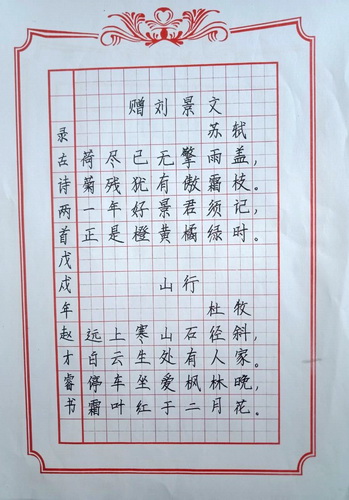 赠刘景文
苏轼
荷尽已无擎雨盖，
菊残犹有傲霜枝。
一年好景君须记，
正是橙黄橘绿时。
山行
杜牧
远上寒山石径斜，
白云生处有人家。
停车坐爱枫林晚，
霜叶红于二月花。
录古诗两首戊戌年赵才睿书